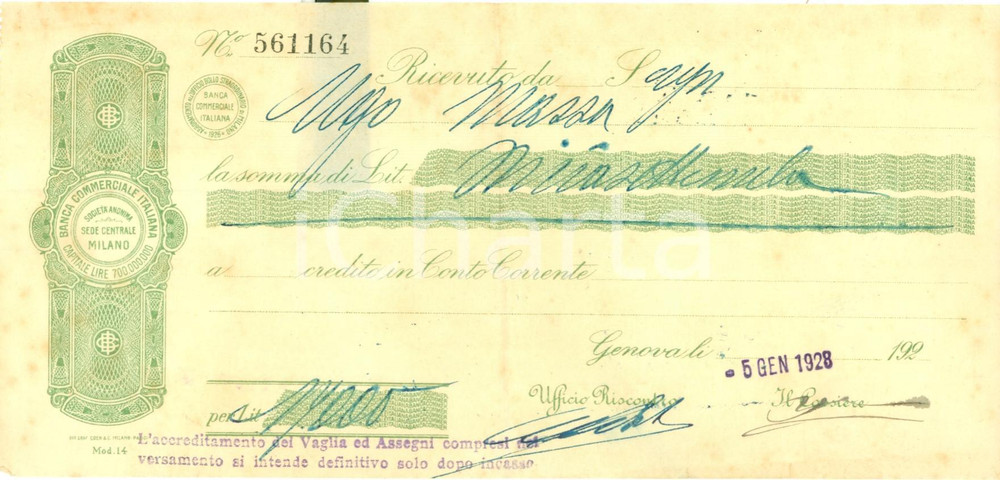 No. 561164
Ricevuto da Sign.
Ugo Massa
BANCA
COMMERCIALE
ITALIANA
1926
la somma di Lit.
BANCA COMMERCIALE ITALIANA
SOCIETÀ ANONIMA
SEDE CENTRALE
MILANO
CAPITALE LIRE 700.000.000
iCharta
a credito in Conto Corrente
Genova li 5 GEN 1928 192
Ufficio Riscontro Il Cassiere
per Lit.
Mod. 14
L'accreditamento dei Vaglia ed Assegni compresi nel
versamento si intende definitivo solo dopo incasso